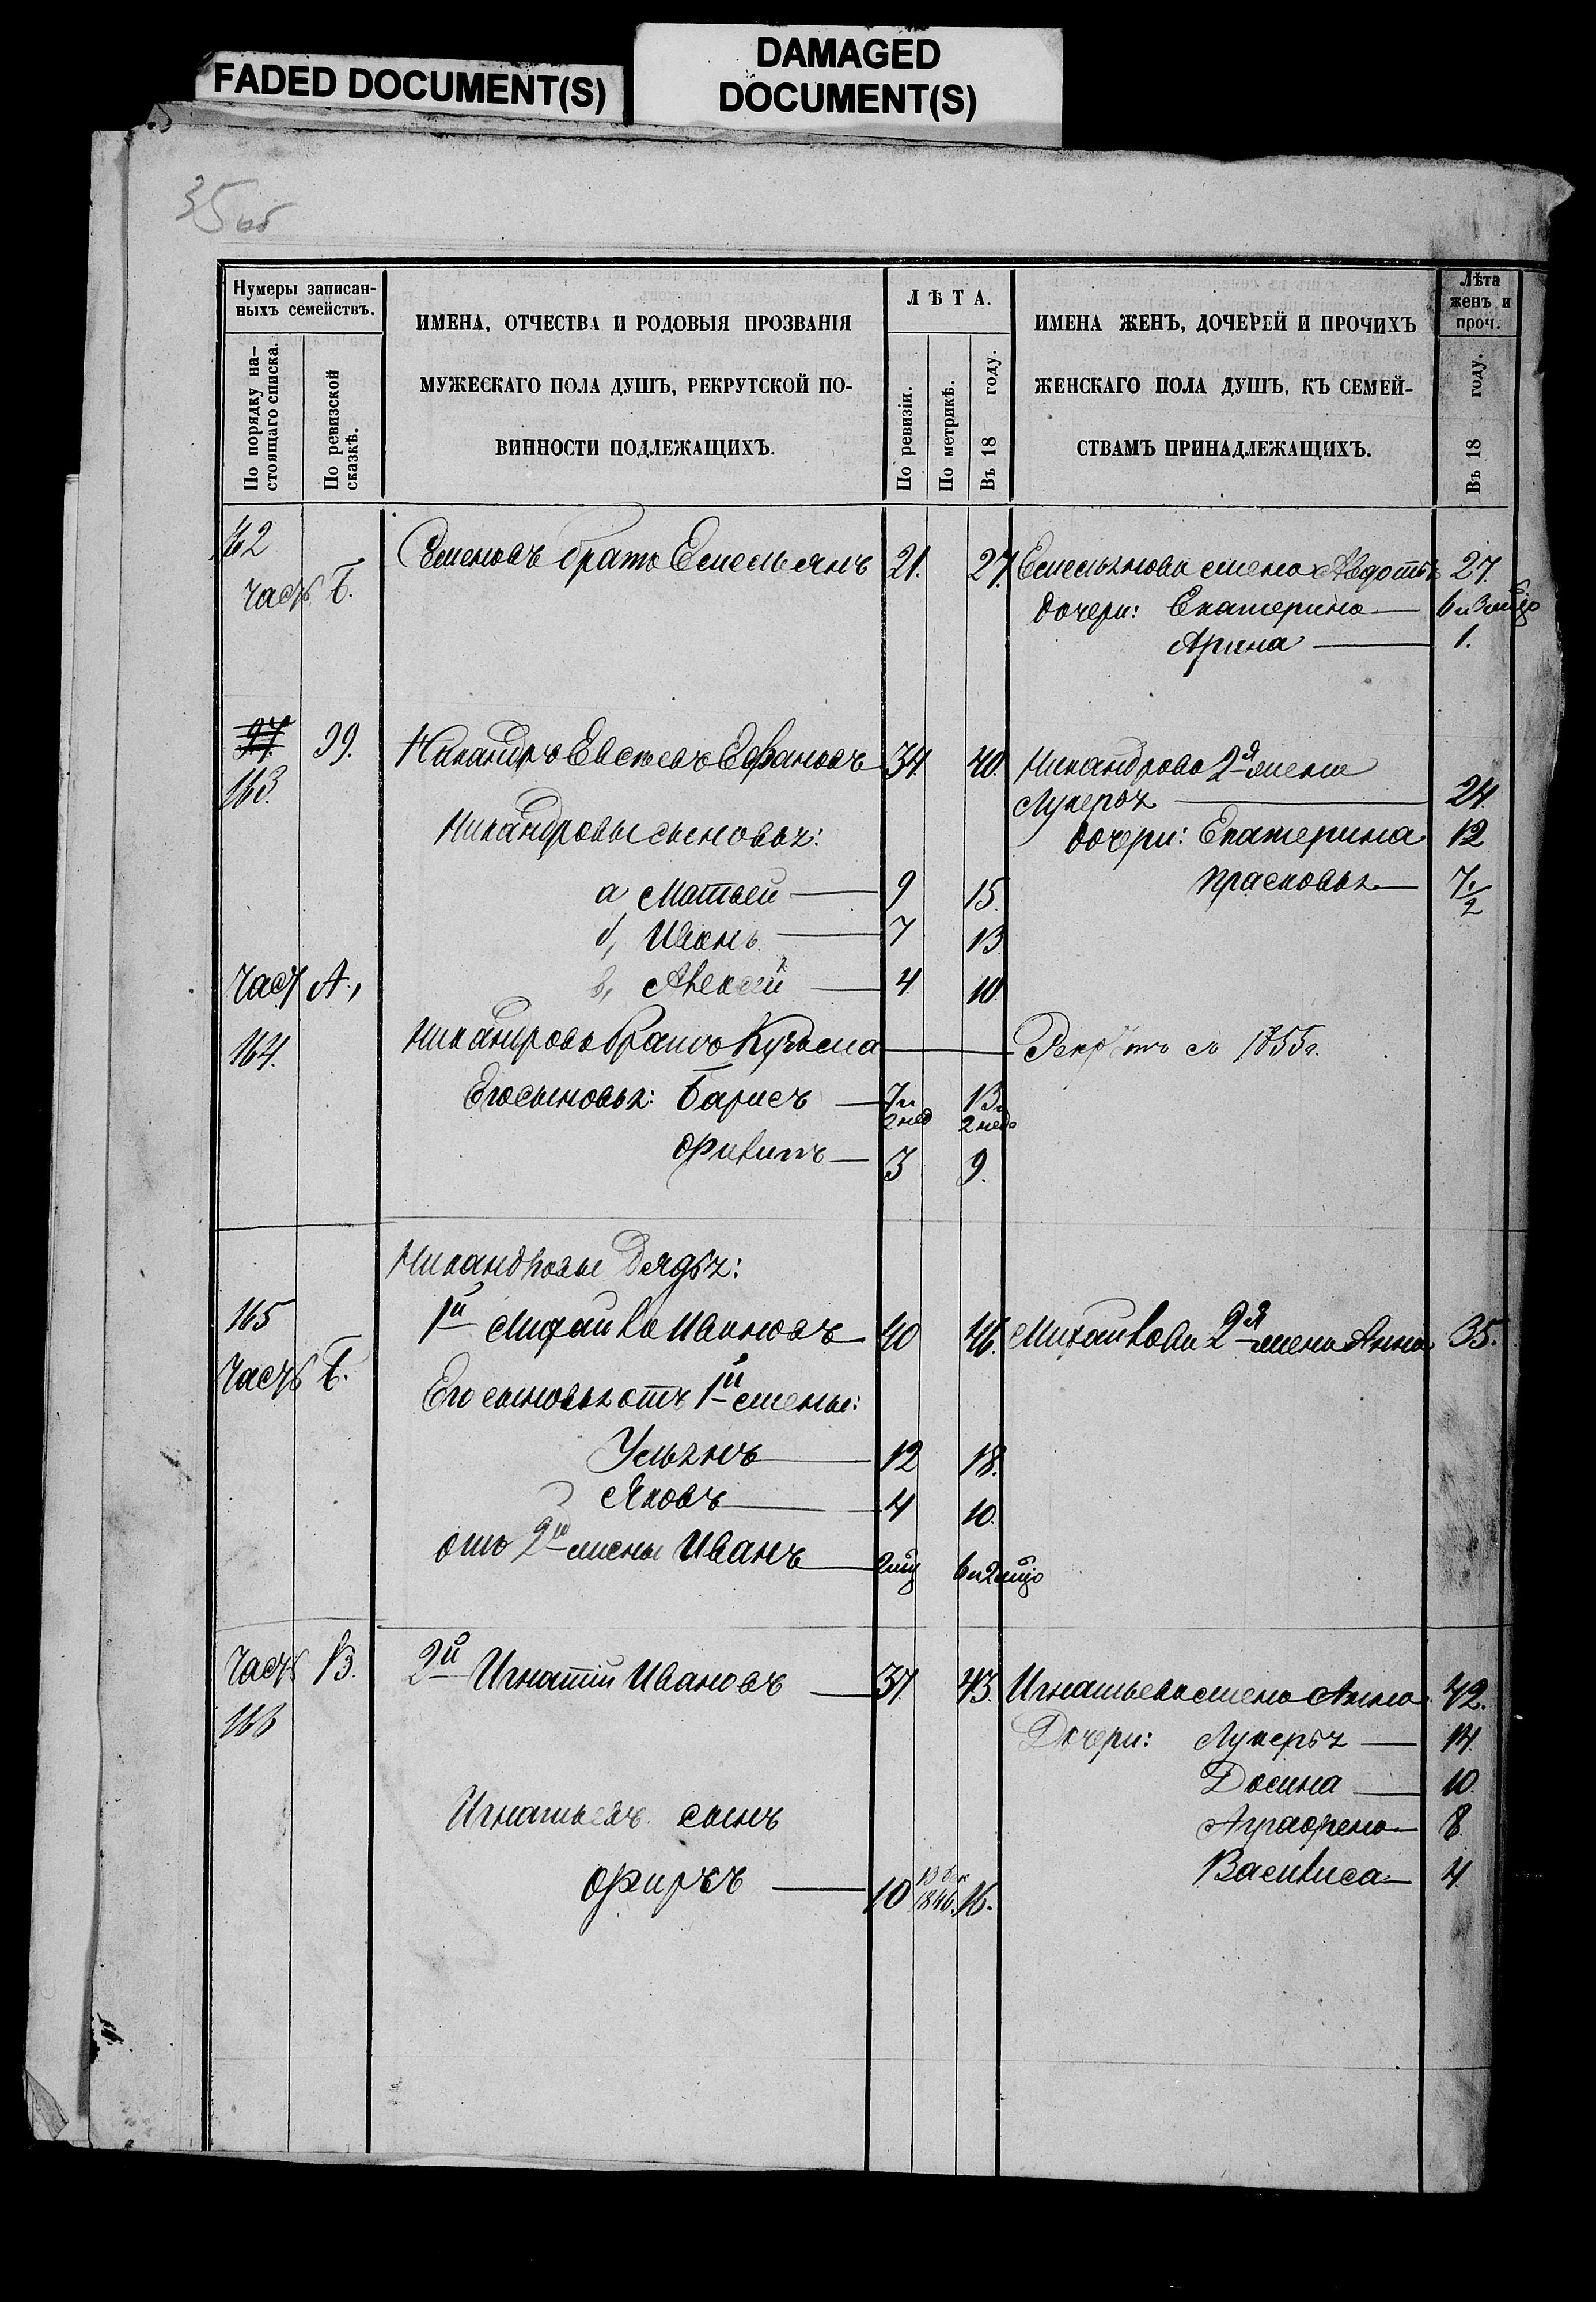 FADED DOCUMENT(S)
DAMAGED
DOCUMENT(S)
35 об
Нумеры записан-
ныхъ семействъ.
По порядку на-
стоящаго списка.
По ревизской
сказкѣ.
ИМЕНА, ОТЧЕСТВА И РОДОВЫЯ ПРОЗВАНІЯ
МУЖЕСКАГО ПОЛА ДУШЪ, РЕКРУТСКОЙ ПО-
ВИННОСТИ ПОДЛЕЖАЩИХЪ.
ЛѢТА.
По ревизіи.
По метрикѣ.
Въ 18 году.
ИМЕНА ЖЕНЪ, ДОЧЕРЕЙ И ПРОЧИХЪ
ЖЕНСКАГО ПОЛА ДУШЪ, КЪ СЕМЕЙ-
СТВАМЪ ПРИНАДЛЕЖАЩИХЪ.
Лѣта
женъ и
проч.
Въ 18 году.
162 Семеновъ братъ Емельянъ 21. 27. Емельянова жена Авдотья 27.
часть Б. дочери: Екатерина 6 и 3 мѣц
Арина 1.
97 99. Никандръ Евсеевъ Ефановъ 34 40. Никандрова 2я жена
163. Лукерья 24.
Никандровы сыновья: дочери: Екатерина 12
а Матвей 9 15. Прасковья 7 1/2
б, Иванъ 7 13
часть А, в, Алексей 4 10.
164. Никандровъ братъ Кузьма Рекрутъ съ 1855г.
Его сыновья: Барисъ 7 и 2 нед 13 и 2 нед
Филипъ 3 9.
Никандровы дядья:
165 1й Михаила Ивановъ 40 46. Михайлова 2я жена Анна 35.
часть Б. Его сыновья отъ 1й жены:
Ульянъ 12 18.
Яковъ 4 10.
отъ 2й жены Иванъ 2 мѣц 6 и 2 мѣц
часть В. 2й Игнатій Ивановъ 37 43. Игнатьева жена Анна 42.
166 Дочери: Лукерья 14.
Досина 10.
Игнатьевъ сынъ Аграфена 8.
Фирсъ 10 13 дек 1846. 16. Василиса 4